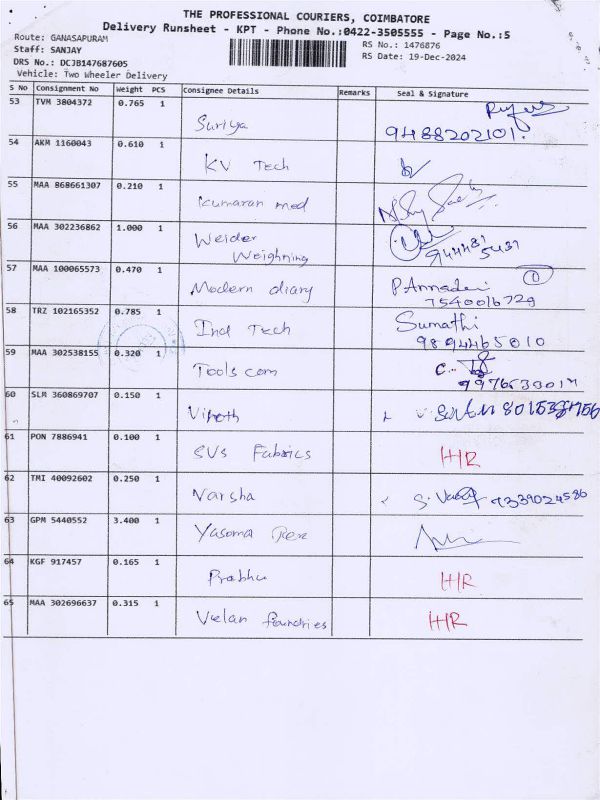 THE PROFESSIONAL COURIERS, COIMBATORE
Delivery Runsheet - KPT - Phone No.:0422-3505555 - Page No.:5
Route: GANASAPURAM
RS No.: 1476876
Staff: SANJAY
RS Date: 19-Dec-2024
DRS No.: DCJB147687605
Vehicle: Two Wheeler Delivery
S No Consignment No Weight PCS Consignee Details Remarks Seal & Signature
53 TVM 3804372 0.765 1 Suriya 9488202101.
54 AKM 1160043 0.610 1 KV Tech
55 MAA 868661307 0.210 1 Kumaran med
56 MAA 302236862 1.000 1 Weider Weighning
57 MAA 100065573 0.470 1 Modern diary P Annadevi 7540016729 1
58 TRZ 102165352 0.785 1 Ind Tech Sumathi 9894465010
59 MAA 302538155 0.320 1 Tools com
60 SLM 360869707 0.150 1 Vinoth
61 PON 7886941 0.100 1 SVS Fabrics HR
62 TMI 40092602 0.250 1 Varsha 7339024586
63 GPM 5440552 3.400 1 Yasoma
64 KGF 917457 0.165 1 Prabhu HR
65 MAA 302696637 0.315 1 Velan foundries HR